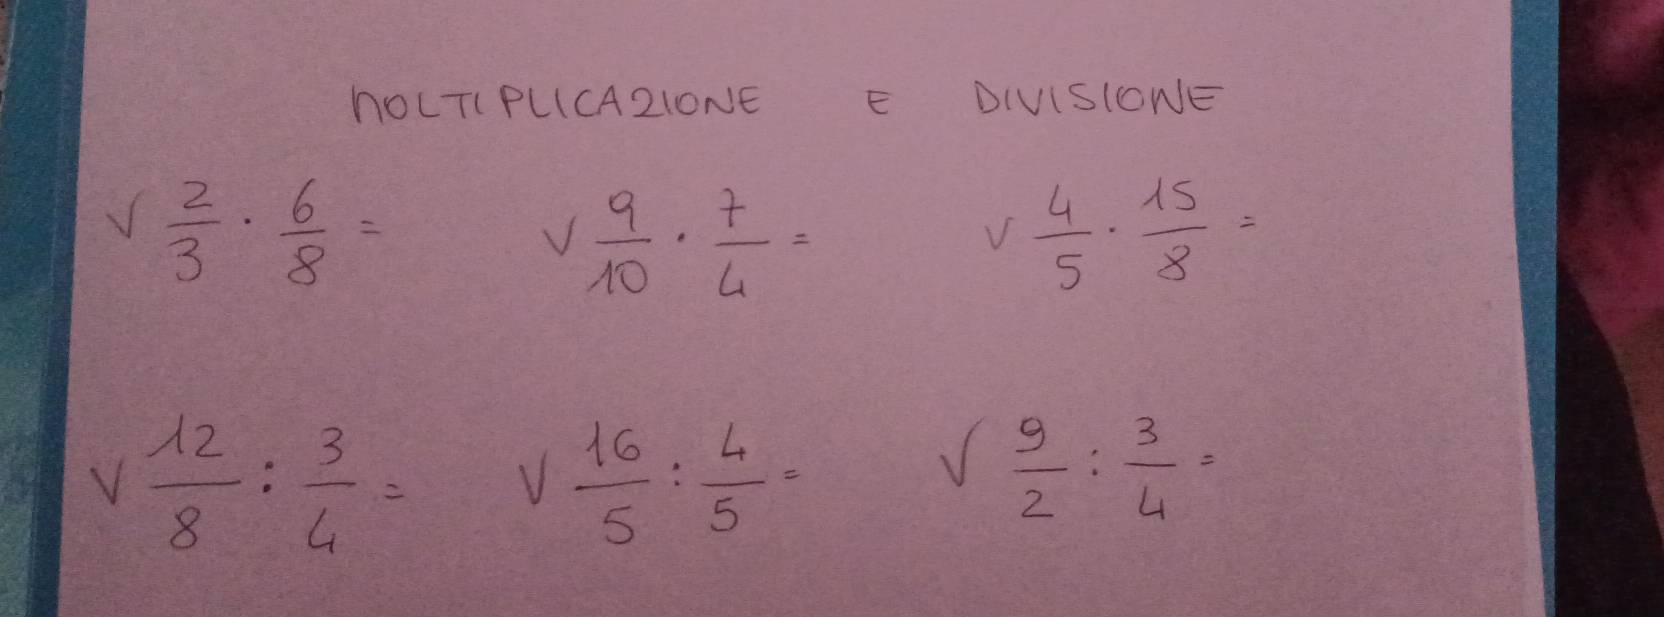 MOLTIPLICAZIONE E DIVISIONE
√ 2/3 · 6/8 = √ 9/10 · 7/4 = √ 4/5 · 15/8 =
√ 12/8 : 3/4 = √ 16/5 : 4/5 = √ 9/2 : 3/4 =